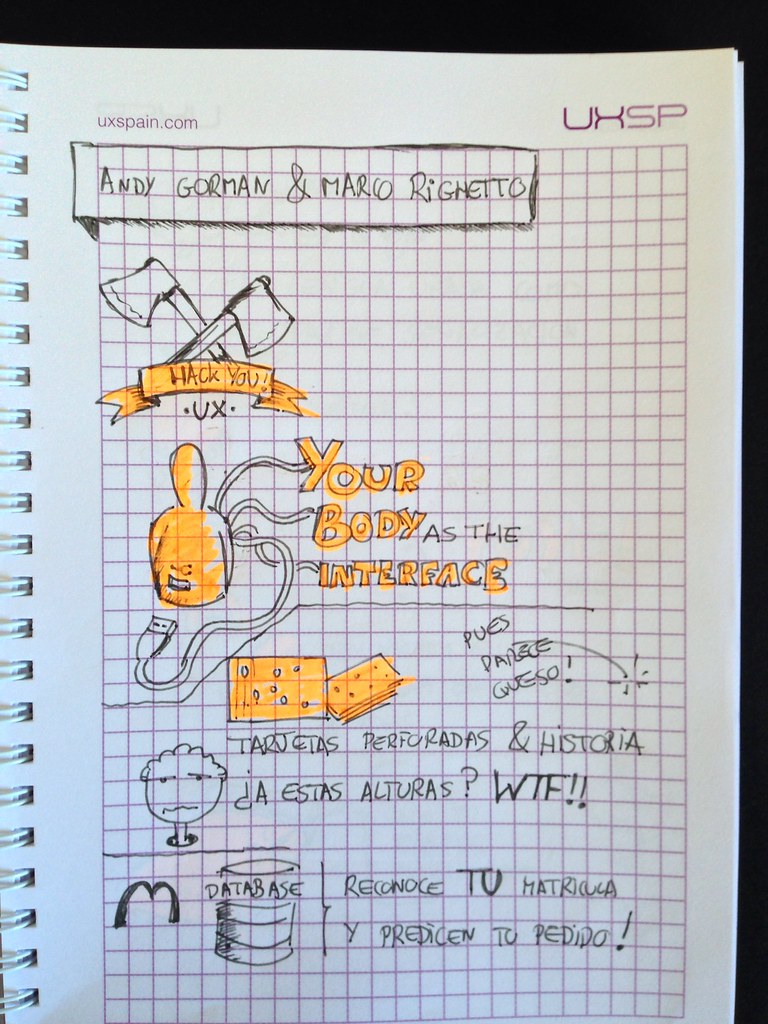 uxspain.com
UXSP
ANDY GORMAN & MARCO RIGHETTO
HACK YOU!
·UX·
YOUR
BODY AS THE
INTERFACE
PUES
PARECE
QUESO!
TARJETAS PERFORADAS & HISTORIA
¿A ESTAS ALTURAS? WTF!!
M
DATABASE
RECONOCE TU MATRICULA
Y PREDICEN TU PEDIDO!